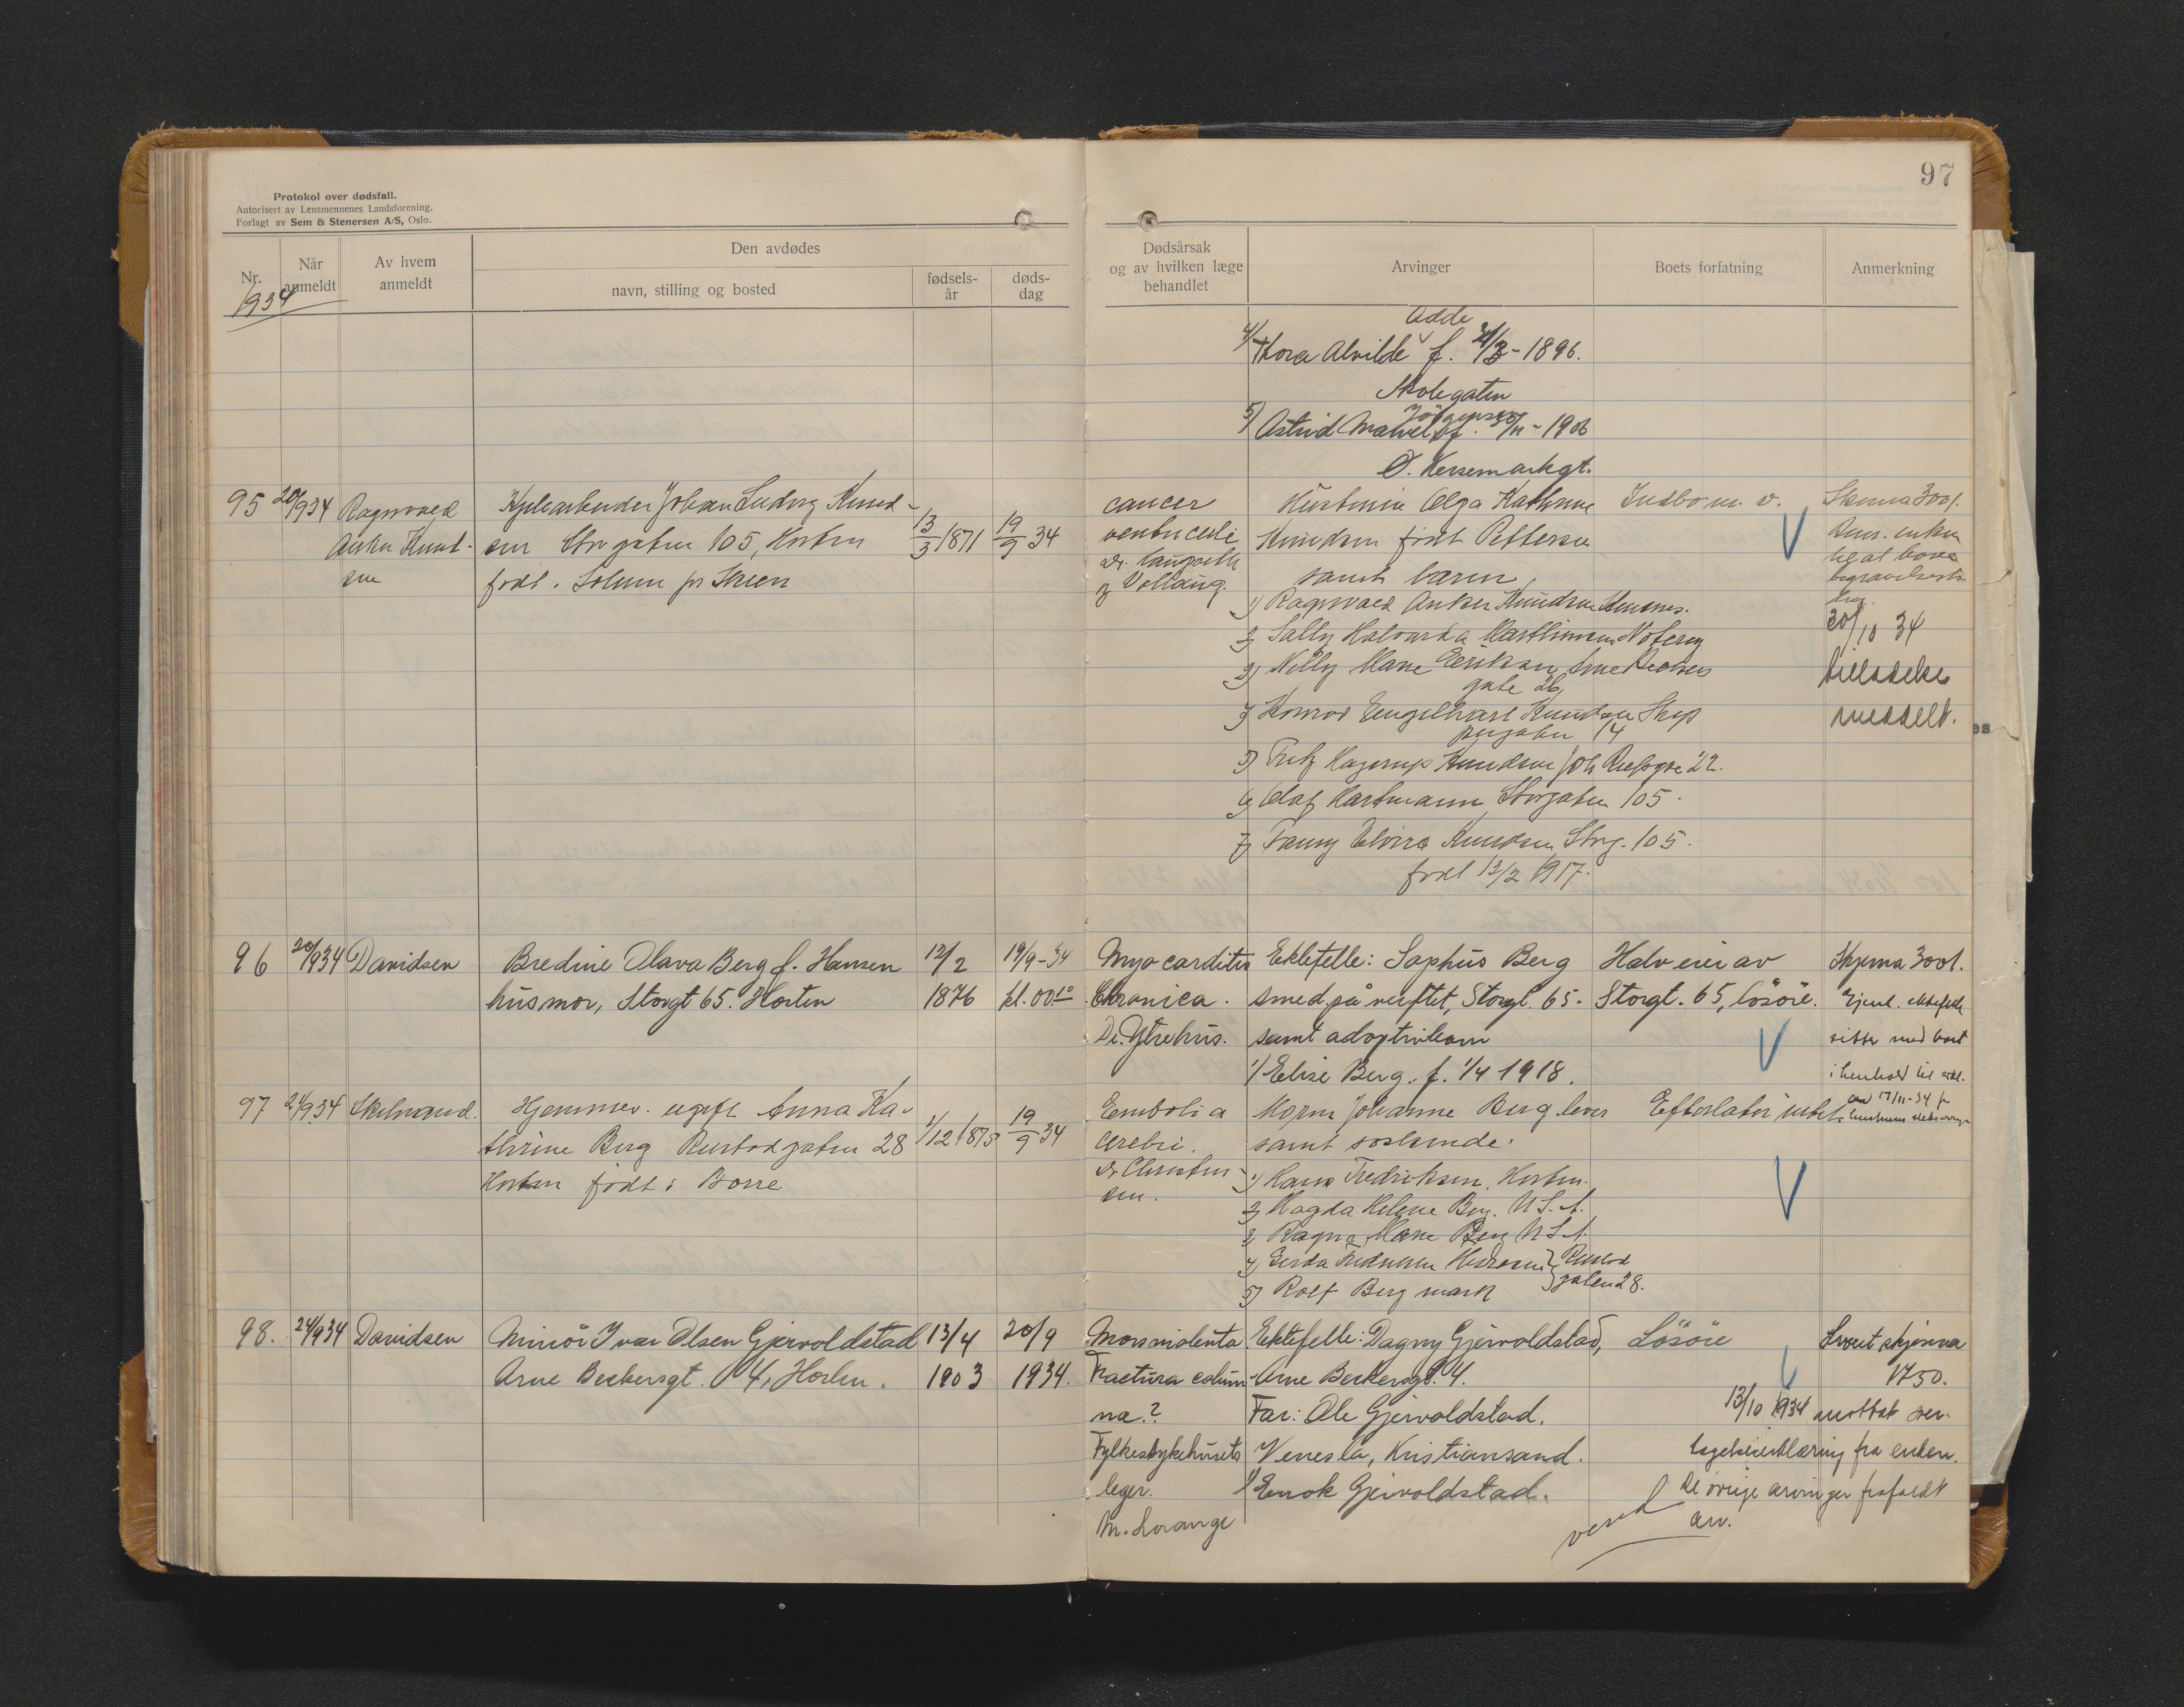 97
Protokol over dødsfall.
Autorisert av Lensmennenes Landsforening.
Forlagt av Sem & Stenersen A/S, Oslo.
Nr.
Når
anmeldt
Av hvem
anmeldt
Den avdødes
navn, stilling og bosted
fødsels-
år
døds-
dag
Dødsårsak
og av hvilken læge
behandlet
Arvinger
Boets forfatning
Anmerkning
1934
Adde
4) Thora Alvilde f. -1896.
Skolegaten
Jörgensen
5) Astrid Malvel f. 30/11-1906
Ø. Kersemarkgt.
95 20/9 34 Ragnvald
Anker Knud-
sen
Johan Ludvig Knud-
sen Storgaten 105, Horten
født i Solum pr Skien
13/3 1871
19/9 34
cancer
ventriculi
og Vellaug.
Olga Kathrine
Knudsen født Pettersen
samt barn,
1) Ragnvald Anker Knudsen
2) Sally Halvarda Martinsen Nøterøy
3) Nelly Marie Eriksen,
gate 26,
4) Konrad Engelhart Knudsen Skip
pergaten 14
5) Fritz Hagerup Knudsen Joh 22.
6) Olaf Hartmann, Storgaten 105.
7) Fanny Elvira Knudsen Strg. 105.
født 13/2 1917.
Indbo m. v.
Skema 3001.
enken
begravelsesbi
drag.
20/10 34
tilladelse
meddelt.
96 20/9 34 Davidsen
Bredine Olava Berg f. Hansen
husmor, Storgt 65. Horten
12/2
1876
19/9-34
kl. 00 10
Myocarditis
Chronica.
Dr. Ytrehus.
Ektefelle: Sophus Berg
smed på verftet, Storgt. 65.
samt adoptivbarn
1) Elise Berg. f. 1/4 1918.
Halv eier av
Storgt. 65, lösöre.
Skjema 3001.
Gjenl. ektefelle
sitter med boet
i henhold til
17/11-34
97 21/9 34 Skulsrud.
Hjemmev. ugift Anna Ka-
thrine Berg Rustadgaten 28
Horten født i Borre.
1/12 1875
19/9 34
Embolia
cerebri.
Dr Christen-
sen.
Moren Johanne Berg lever
samt søskende:
1) Hans Fredriksen, Horten.
2) Magda Helene Berg. U.S.A.
3) Ragna Marie Berg U.S.A
4) Gerda
5) Rolf Berg
Rustad
gaten 28.
Efterlater intet.
98. 24/9 34 Davidsen
Minör Ivar Olsen Gjervoldstad
Arne Beckersgt. 4, Horten.
13/4
1903
20/9
1934.
Mors violenta
Fractura colum-
na.?
Fylkessykehusets
leger.
M. Lorange
Ektefelle: Dagny Gjervoldstad,
Arne Beckersgt. 4.
Far: Ole Gjervoldstad.
Venesla, Kristiansand.
1) Enok Gjervoldstad.
Lösöre
skjema
1750.
13/10 1934 mottat over-
tagelseserklæring fra enken.
De övrige arvinger frafaldt
arv.